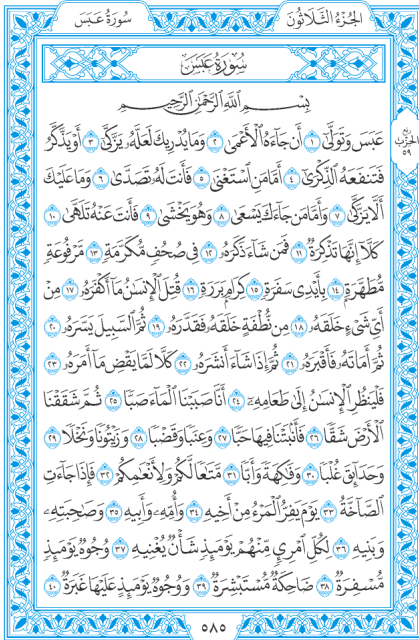 الجُزْءُ الثَّلَاثُونَ
سُورَةُ عَبَسَ
سُورَةُ عَبَسَ
بِسْمِ اللَّهِ الرَّحْمَٰنِ الرَّحِيمِ
عَبَسَ وَتَوَلَّىٰٓ ١ أَن جَآءَهُ ٱلْأَعْمَىٰ ٢ وَمَا يُدْرِيكَ لَعَلَّهُۥ يَزَّكَّىٰٓ ٣ أَوْ يَذَّكَّرُ
فَتَنفَعَهُ ٱلذِّكْرَىٰٓ ٤ أَمَّا مَنِ ٱسْتَغْنَىٰ ٥ فَأَنتَ لَهُۥ تَصَدَّىٰ ٦ وَمَا عَلَيْكَ
أَلَّا يَزَّكَّىٰ ٧ وَأَمَّا مَن جَآءَكَ يَسْعَىٰ ٨ وَهُوَ يَخْشَىٰ ٩ فَأَنتَ عَنْهُ تَلَهَّىٰ ١٠
كَلَّآ إِنَّهَا تَذْكِرَةٌ ١١ فَمَن شَآءَ ذَكَرَهُۥ ١٢ فِى صُحُفٍ مُّكَرَّمَةٍ ١٣ مَّرْفُوعَةٍ
مُّطَهَّرَةٍۭ ١٤ بِأَيْدِى سَفَرَةٍ ١٥ كِرَامٍۭ بَرَرَةٍ ١٦ قُتِلَ ٱلْإِنسَٰنُ مَآ أَكْفَرَهُۥ ١٧ مِنْ
أَىِّ شَىْءٍ خَلَقَهُۥ ١٨ مِن نُّطْفَةٍ خَلَقَهُۥ فَقَدَّرَهُۥ ١٩ ثُمَّ ٱلسَّبِيلَ يَسَّرَهُۥ ٢٠
ثُمَّ أَمَاتَهُۥ فَأَقْبَرَهُۥ ٢١ ثُمَّ إِذَا شَآءَ أَنشَرَهُۥ ٢٢ كَلَّا لَمَّا يَقْضِ مَآ أَمَرَهُۥ ٢٣
فَلْيَنظُرِ ٱلْإِنسَٰنُ إِلَىٰ طَعَامِهِۦٓ ٢٤ أَنَّا صَبَبْنَا ٱلْمَآءَ صَبًّا ٢٥ ثُمَّ شَقَقْنَا
ٱلْأَرْضَ شَقًّا ٢٦ فَأَنۢبَتْنَا فِيهَا حَبًّا ٢٧ وَعِنَبًا وَقَضْبًا ٢٨ وَزَيْتُونًا وَنَخْلًا ٢٩
وَحَدَآئِقَ غُلْبًا ٣٠ وَفَٰكِهَةً وَأَبًّا ٣١ مَّتَٰعًا لَّكُمْ وَلِأَنْعَٰمِكُمْ ٣٢ فَإِذَا جَآءَتِ
ٱلصَّآخَّةُ ٣٣ يَوْمَ يَفِرُّ ٱلْمَرْءُ مِنْ أَخِيهِ ٣٤ وَأُمِّهِۦ وَأَبِيهِ ٣٥ وَصَٰحِبَتِهِۦ
وَبَنِيهِ ٣٦ لِكُلِّ ٱمْرِئٍ مِّنْهُمْ يَوْمَئِذٍ شَأْنٌ يُغْنِيهِ ٣٧ وُجُوهٌ يَوْمَئِذٍ
مُّسْفِرَةٌ ٣٨ ضَاحِكَةٌ مُّسْتَبْشِرَةٌ ٣٩ وَوُجُوهٌ يَوْمَئِذٍ عَلَيْهَا غَبَرَةٌ ٤٠
ربع
الحزب
٥٩
٥٨٥